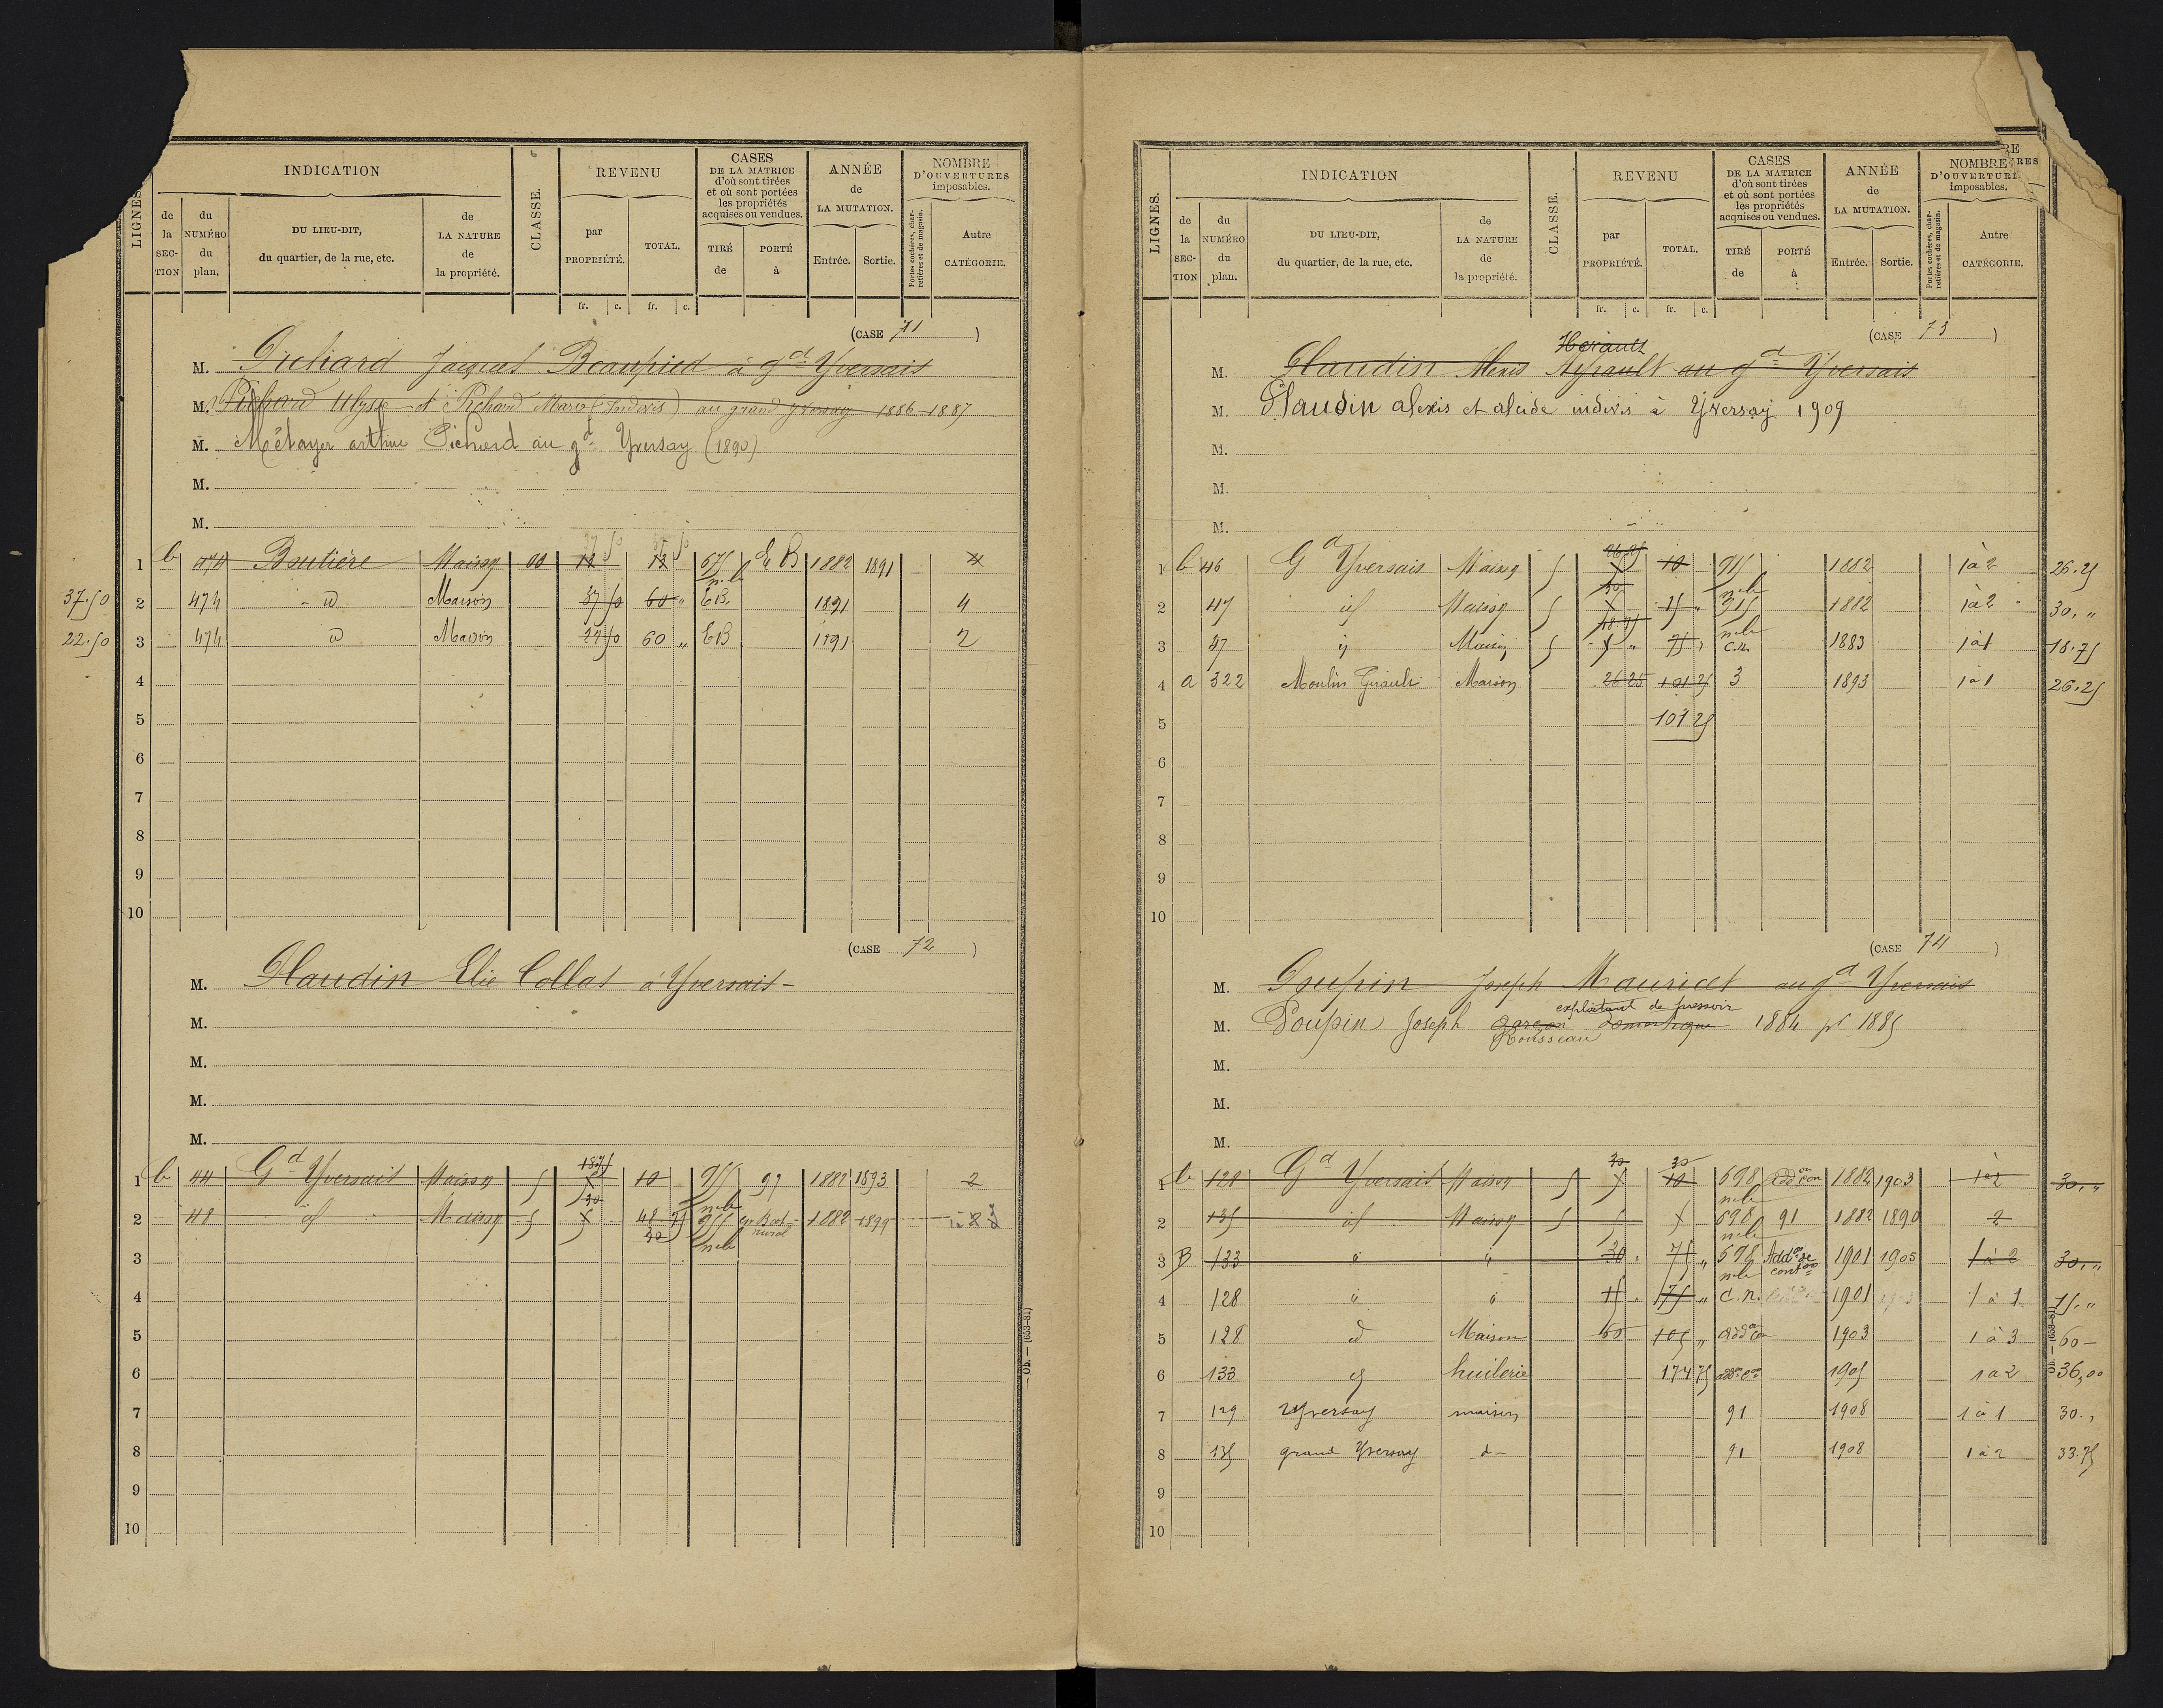 LIGNES.
INDICATION
CLASSE.
REVENU
CASES
DE LA MATRICE
d'où sont tirées
et où sont portées
les propriétés
acquises ou vendues.
ANNÉE
de
LA MUTATION.
NOMBRE
D'OUVERTURES
imposables.
de la SECTION
du NUMÉRO du plan.
DU LIEU-DIT,
du quartier, de la rue, etc.
de LA NATURE de la propriété.
par PROPRIÉTÉ.
TOTAL.
TIRÉ de
PORTÉ à
Entrée.
Sortie.
Portes cochères, charretières et de magasin.
Autre CATÉGORIE.
fr. c. fr. c.
(CASE 71)
M. Pichard Jacques Beaupied à gd Yversais
M. Pichard Ulysse et Pichard Marie (Indivis) au grand Yversay 1886-1887
M. Métayer arthur Pichard au gd Yversay (1890)
M.
M.
37 50
1 b 474 Boutière Maison 12 12 675 E B 1882 1891 4
n.le
37.50 2 474 - id Maison 37 50 60 " E B. 1891 4
22.50 3 474 id Maison 22 50 60 " E B 1891 2
4
5
6
7
8
9
10
(CASE 72)
M. Glaudin Elie Collas à Yversais -
M.
M.
M.
M.
1 b 44 Gd Yversais Maison 5 18 75 5 10 955 97 1882 1893 2
n.le
2 48 id Maison 5 30 5 48 75 955 1882 1899 1 à 2
30 n.le rural
3
4
5
6
7
8
9
10
Ob. — (653-81)
LIGNES.
INDICATION
CLASSE.
REVENU
CASES
DE LA MATRICE
d'où sont tirées
et où sont portées
les propriétés
acquises ou vendues.
ANNÉE
de
LA MUTATION.
NOMBRE
D'OUVERTURES
imposables.
de la SECTION
du NUMÉRO du plan.
DU LIEU-DIT,
du quartier, de la rue, etc.
de LA NATURE de la propriété.
par PROPRIÉTÉ.
TOTAL.
TIRÉ de
PORTÉ à
Entrée.
Sortie.
Portes cochères, charretières et de magasin.
Autre CATÉGORIE.
fr. c. fr. c.
(CASE 73)
Herault
M. Glaudin Alexis Ayrault au gd Yversais
M. Glaudin alexis et alcide indivis à Yversay 1909
M.
M.
M.
1 b 46 Gd Yversais Maison 5 26.25 5 10 915 1882 1 à 2 26.25
n.le
2 47 id Maison 5 30 5 15 " 315 1882 1 à 2 30, "
n.le
3 47 id Maison 5 18.75 5 " 75 " c.n. 1883 1 à 1 18.75
4 a 322 Moulin Girault Maison 26 25 101 25 3 1893 1 à 1 26.25
5 101 25
6
7
8
9
10
(CASE 74)
M. Poupin Joseph Mauricet au gd Yversais
exploitant de pressoir
M. Poupin Joseph garçon domestique 1884 pr 1885
Rousseau
M.
M.
M.
1 b 128 Gd Yversais Maison 5 30 5 30 10 698 add on con 1882 1903 1 à 2 30, "
n.le
2 135 id Maison 5 5 5 698 91 1882 1890 2
n.le
3 B 133 " " 30 " 75 " 698 Addon de conton 1901 1905 1 à 2 30, "
n.le
4 128 " " 75 " 175 " c.n. 1901 1 à 1 75, "
5 128 id Maison 60 105 " addon con 1903 1 à 3 60 -
6 133 id huilerie 174 75 addon con 1905 1 à 2 36,00
7 129 Yversay maison 91 1908 1 à 1 30. ,
8 135 grand Yversay d- 91 1908 1 à 2 33.75
9
10
Ob. — (653-81)